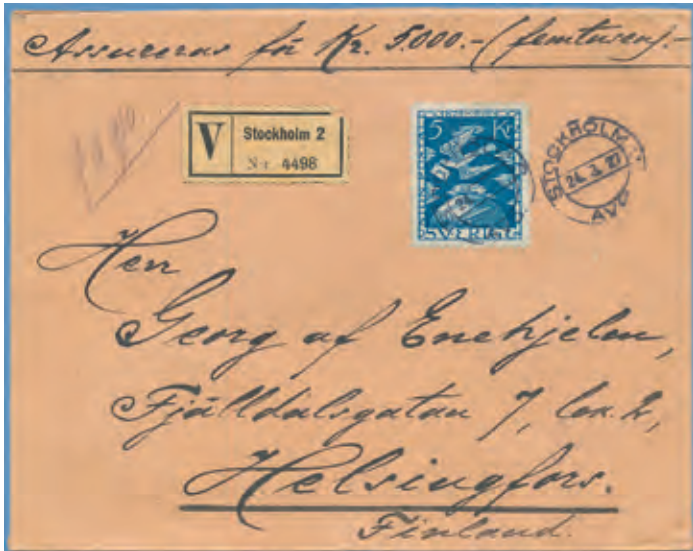 Assureras för Kr. 5.000.- (femtusen).-
V Stockholm 2
Nr 4498
5 Kr
SVERIGE
STOCKHOLM
24. 3. 27
AVG.
Herr
Georg af Enehjelm,
Fjälldalsgatan 7, lok. 2,
Helsingfors.
Finland.